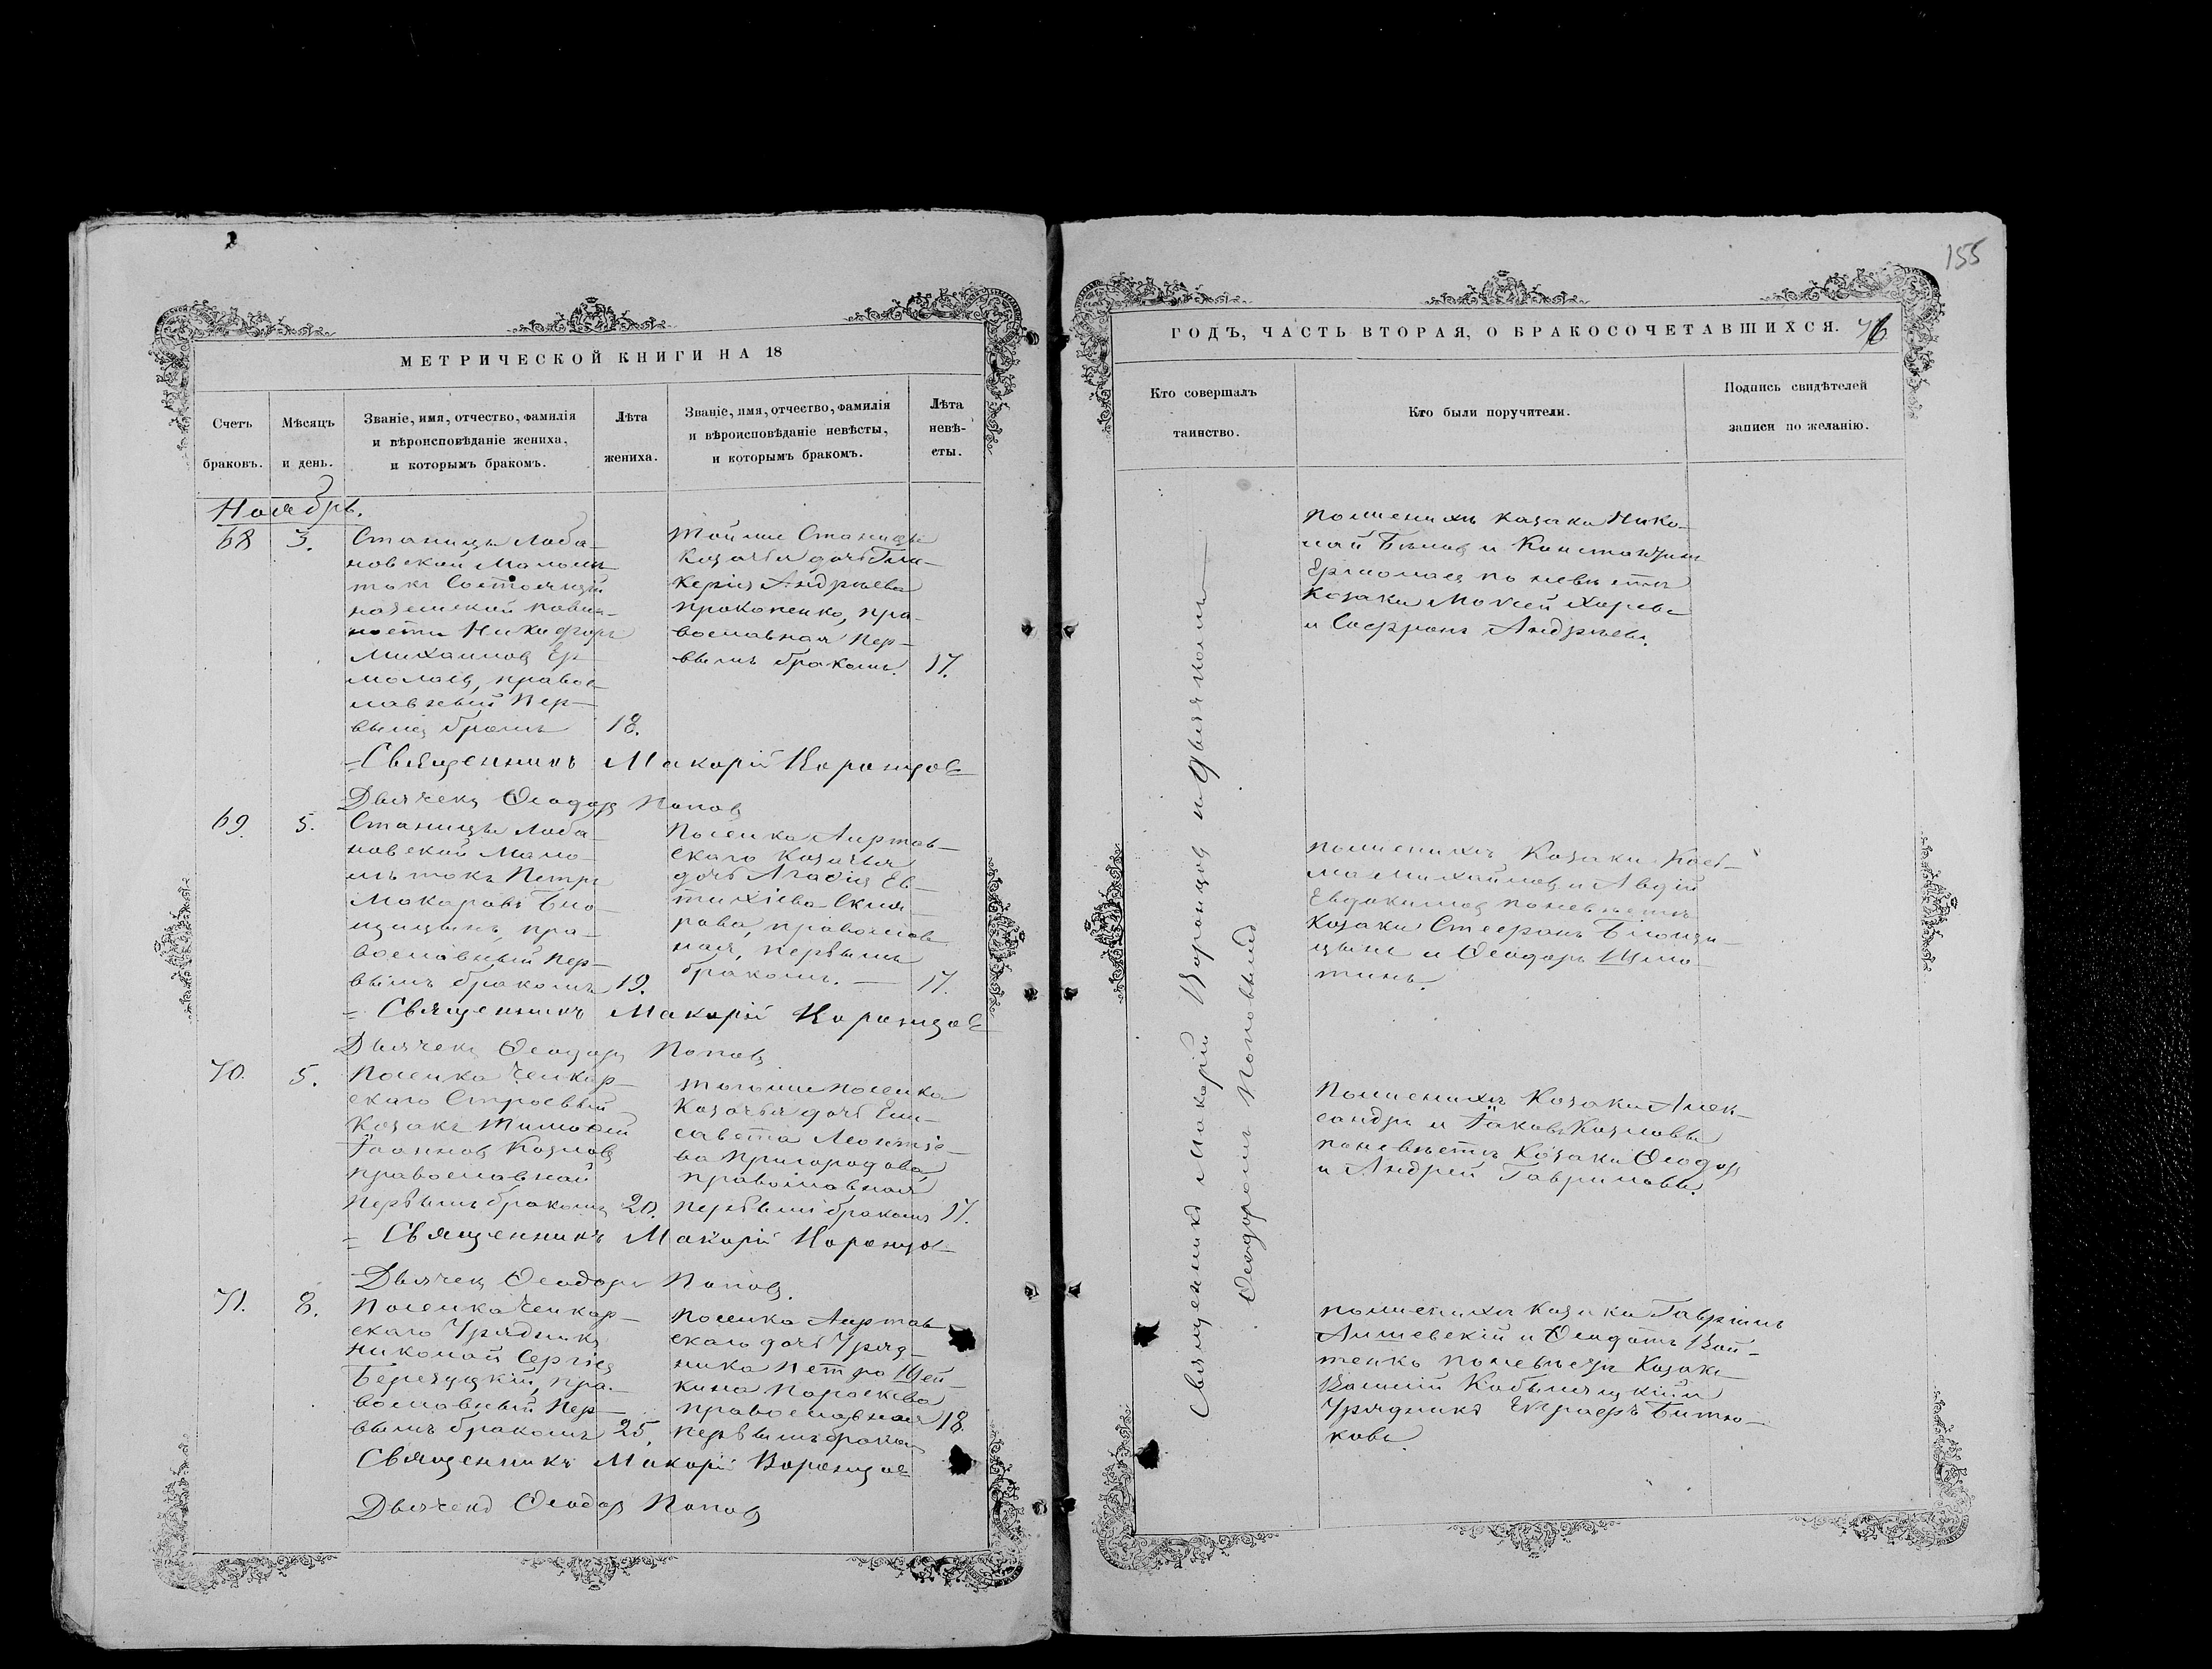 155
МЕТРИЧЕСКОЙ КНИГИ НА 18
Счетъ браковъ.
Мѣсяцъ и день.
Званіе, имя, отчество, фамилія
и вѣроисповѣданіе жениха,
и которымъ бракомъ.
Лѣта жениха.
Званіе, имя, отчество, фамилія
и вѣроисповѣданіе невѣсты,
и которымъ бракомъ.
Лѣта невѣ-
сты.
Ноябрь.
68
3.
Станицы Лоба-
новской Малолѣ-
токъ Состоящій
Никифоръ
Михаиловъ Ер-
молаевъ, правос-
лавный пер-
вымъ бракомъ
18.
Тойже Станицы
Козачья дочь Гли-
керія Андрѣева
Прокопенко, пра-
вославная пер-
вымъ бракомъ.
17.
Священникъ Макарій Воронцовъ
Дьячекъ Ѳеодоръ Поповъ
69.
5.
Станицы Лоба-
новской Мало-
лѣтокъ Петръ
Макаровъ
пра-
вославный пер-
вымъ бракомъ
19.
Поселка Аиртав-
скаго Козачья
дочь Агафія Ев-
тихіева
православ-
ная, первымъ
бракомъ. —
17.
Священникъ Макарій Воронцовъ
Дьячекъ Ѳеодоръ Поповъ
70.
5.
Поселка Челкар-
скаго Строевый
Козакъ Тимоѳей
Іоанновъ Козловъ
православной
первымъ бракомъ
20.
Тогоже поселка
Козачья дочь Ели-
савета Леонтіе-
ва Пригородова
православная
первымъ бракомъ
17.
Священникъ Макарій Воронцовъ
Дьячекъ Ѳеодоръ Поповъ.
71.
8.
Поселка Челкар-
скаго Урядникъ
Николай Сергіевъ
Березуцкій, пра-
вославный пер-
вымъ бракомъ
25.
Поселка Аиртав-
скаго дочь Уряд-
ника Петра Щей-
кина Параскева
православная
первымъ бракомъ
18.
Священникъ Макарій Воронцовъ
Дьячекъ Ѳеодоръ Поповъ
ГОДЪ, ЧАСТЬ ВТОРАЯ, О БРАКОСОЧЕТАВШИХСЯ. 76
Кто совершалъ
таинство.
Кто были поручители.
Подпись свидѣтелей
записи по желанію.
Священникъ Макарій Воронцовъ съ Дьячкомъ
Ѳеодоромъ Поповымъ
по женихѣ казаки Нико-
лай Бѣловъ и Константинъ
Ермолаевъ по невѣстѣ
Козаки Моисей
и Софронъ Андрѣевъ.
по женихѣ Козаки Кось-
ма Михайловъ и Авдій
Евдокимовъ по невѣстѣ
Козаки Стефанъ
и Ѳеодоръ
по женихѣ Козаки Алек-
сандръ и Іаковъ Козловы
по невѣстѣ Козаки Ѳеодоръ
и Андрей Гавриловы.
по женихѣ Козаки Гавріилъ
и Ѳеодотъ Вой-
тенко по невѣстѣ Козакъ
Василій Кобылецкій и
Урядникъ Евграфъ Битю-
ковъ.